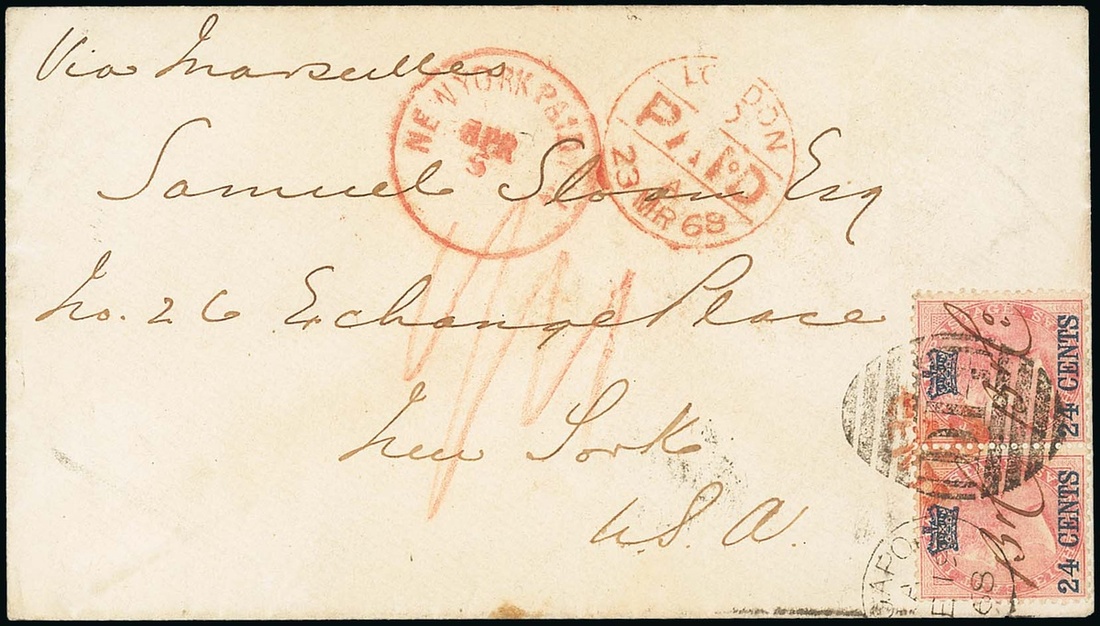 Via Marseilles
NEW YORK PAID ALL
APR
5
LONDON
PAID
23 MR 68
Samuel Sloan Esq
No. 26 Exchange Place
New York
U.S.A.
24 CENTS
24 CENTS